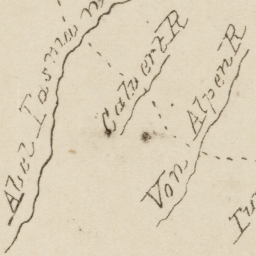 Abel Tasman
Calvert R
Von Alpen R